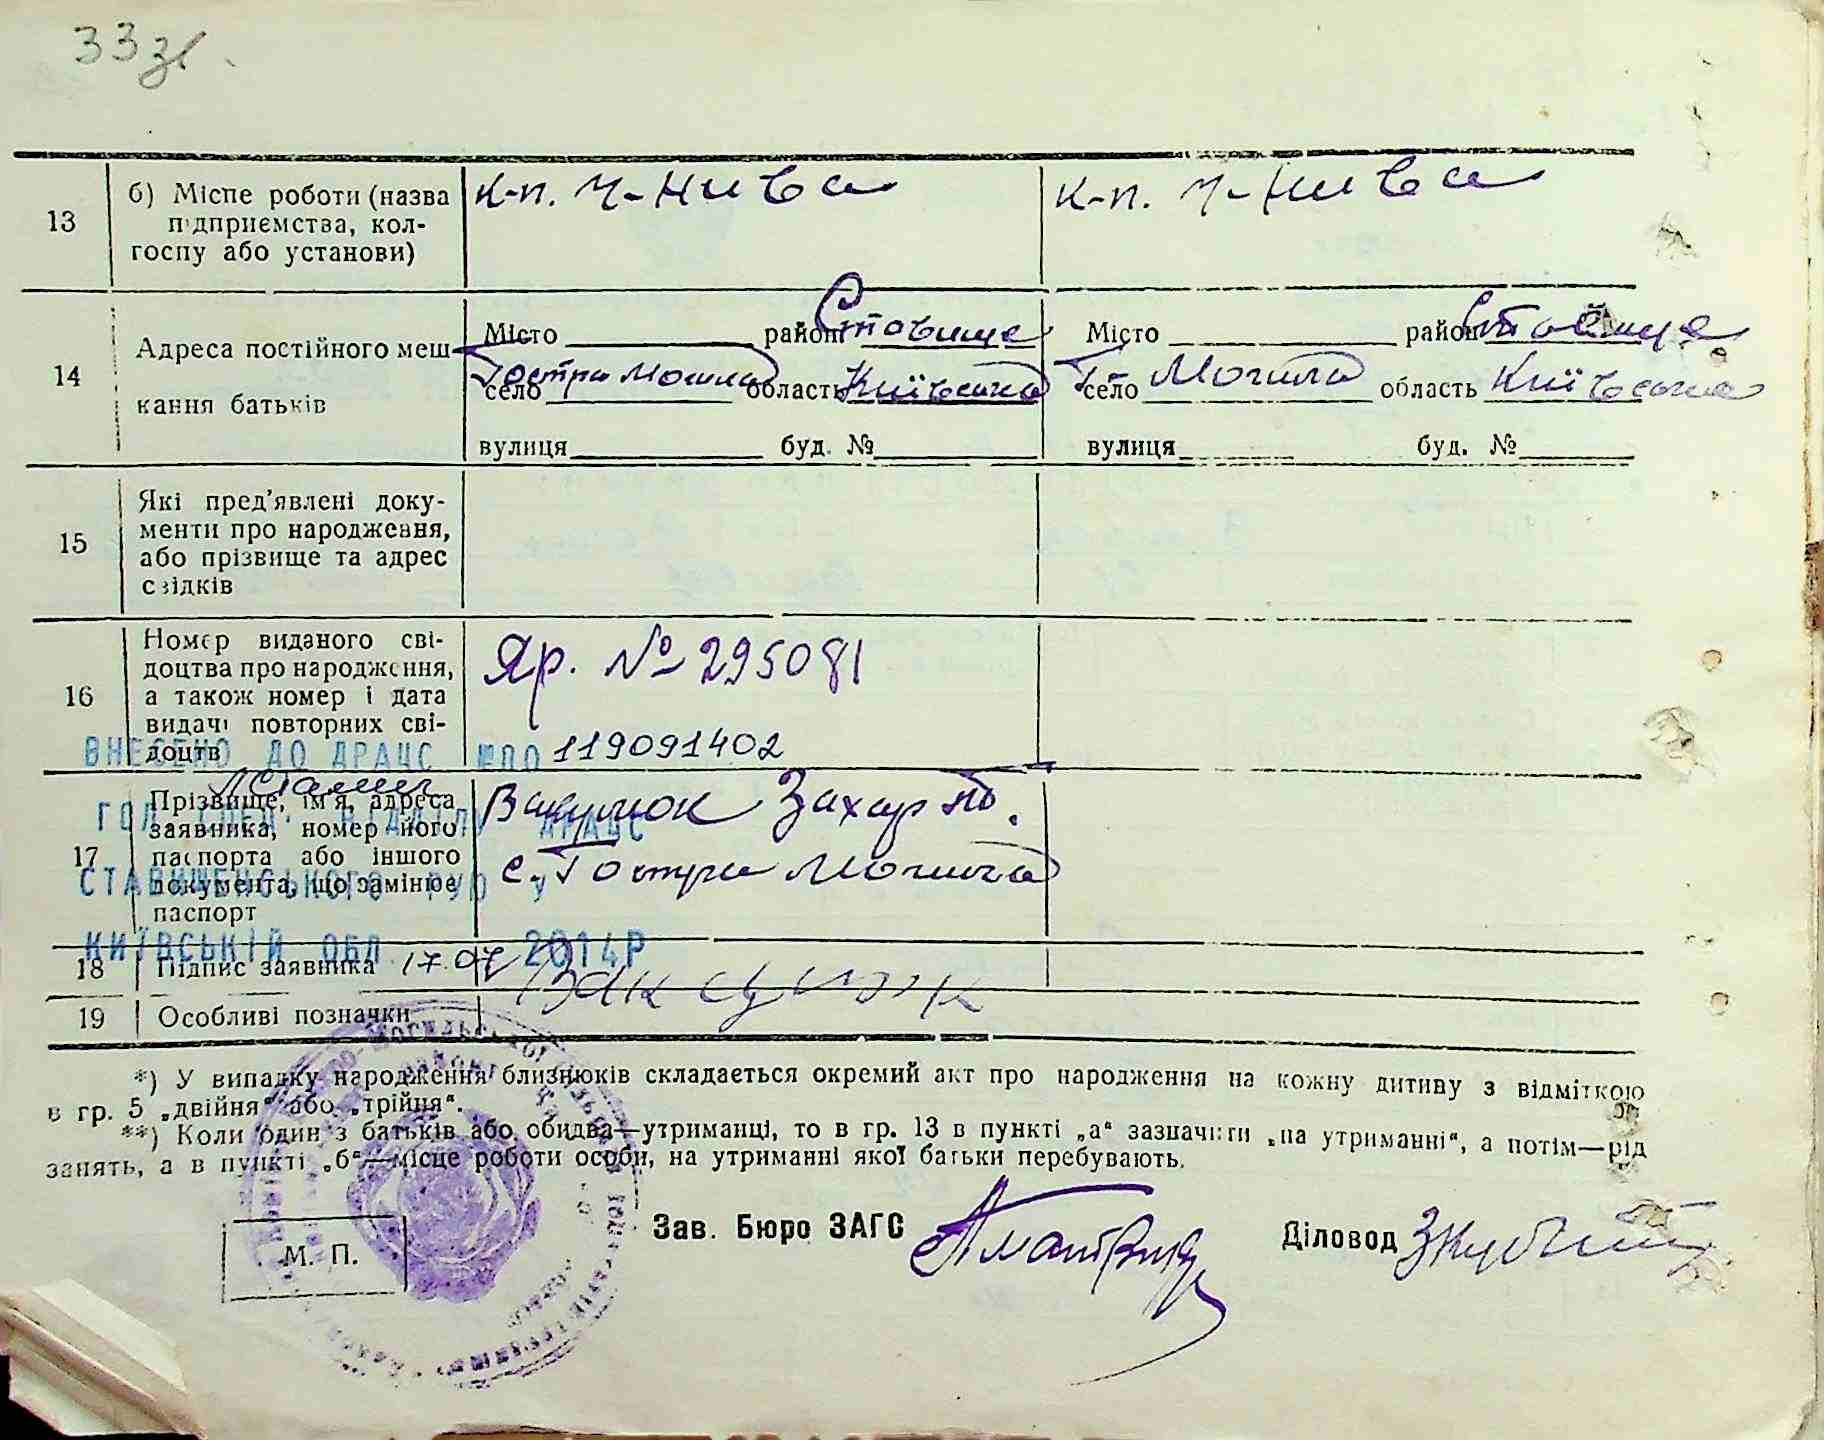 33 зв.
13
б) Місце роботи (назва
підприємства, кол-
госпу або установи)
к-п. Ч-Нива
к-п. Ч-Нива
14
Адреса постійного меш
кання батьків
Місто район Ставище
село Гостра Могила область Київська
вулиця буд. №
Місто район Ставище
село Г. Могила область Київська
вулиця буд. №
15
Які пред'явлені доку-
менти про народження,
або прізвище та адрес
свідків
16
Номер виданого сві-
доцтва про народження,
а також номер і дата
видачі повторних сві-
доцтв
Яр. № 295081
ВНЕСЕНО ДО ДРАЦС №ПО 119091402
17
Прізвище, ім'я, адреса
заявника, номер його
паспорта або іншого
документа, що замінює
паспорт
Вакулюк Захар
с. Гостра Могила
ГОЛ. СПЕЦ. ВІДДІЛУ ДРАЦС
СТАВИЩЕНСЬКОГО РУЮ У
КИЇВСЬКІЙ ОБЛ. 17.07 2014Р
18
Підпис заявника
Вакулюк
19
Особливі позначки
*) У випадку народження близнюків складається окремий акт про народження на кожну дитину з відміткою
в гр. 5 „двійня“ або „трійня“.
**) Коли один з батьків або обидва—утриманці, то в гр. 13 в пункті „а“ зазначити „на утриманні“, а потім—рід
занять, а в пункті „б“—місце роботи особи, на утриманні якої батьки перебувають.
Зав. Бюро ЗАГС
Діловод
М. П.